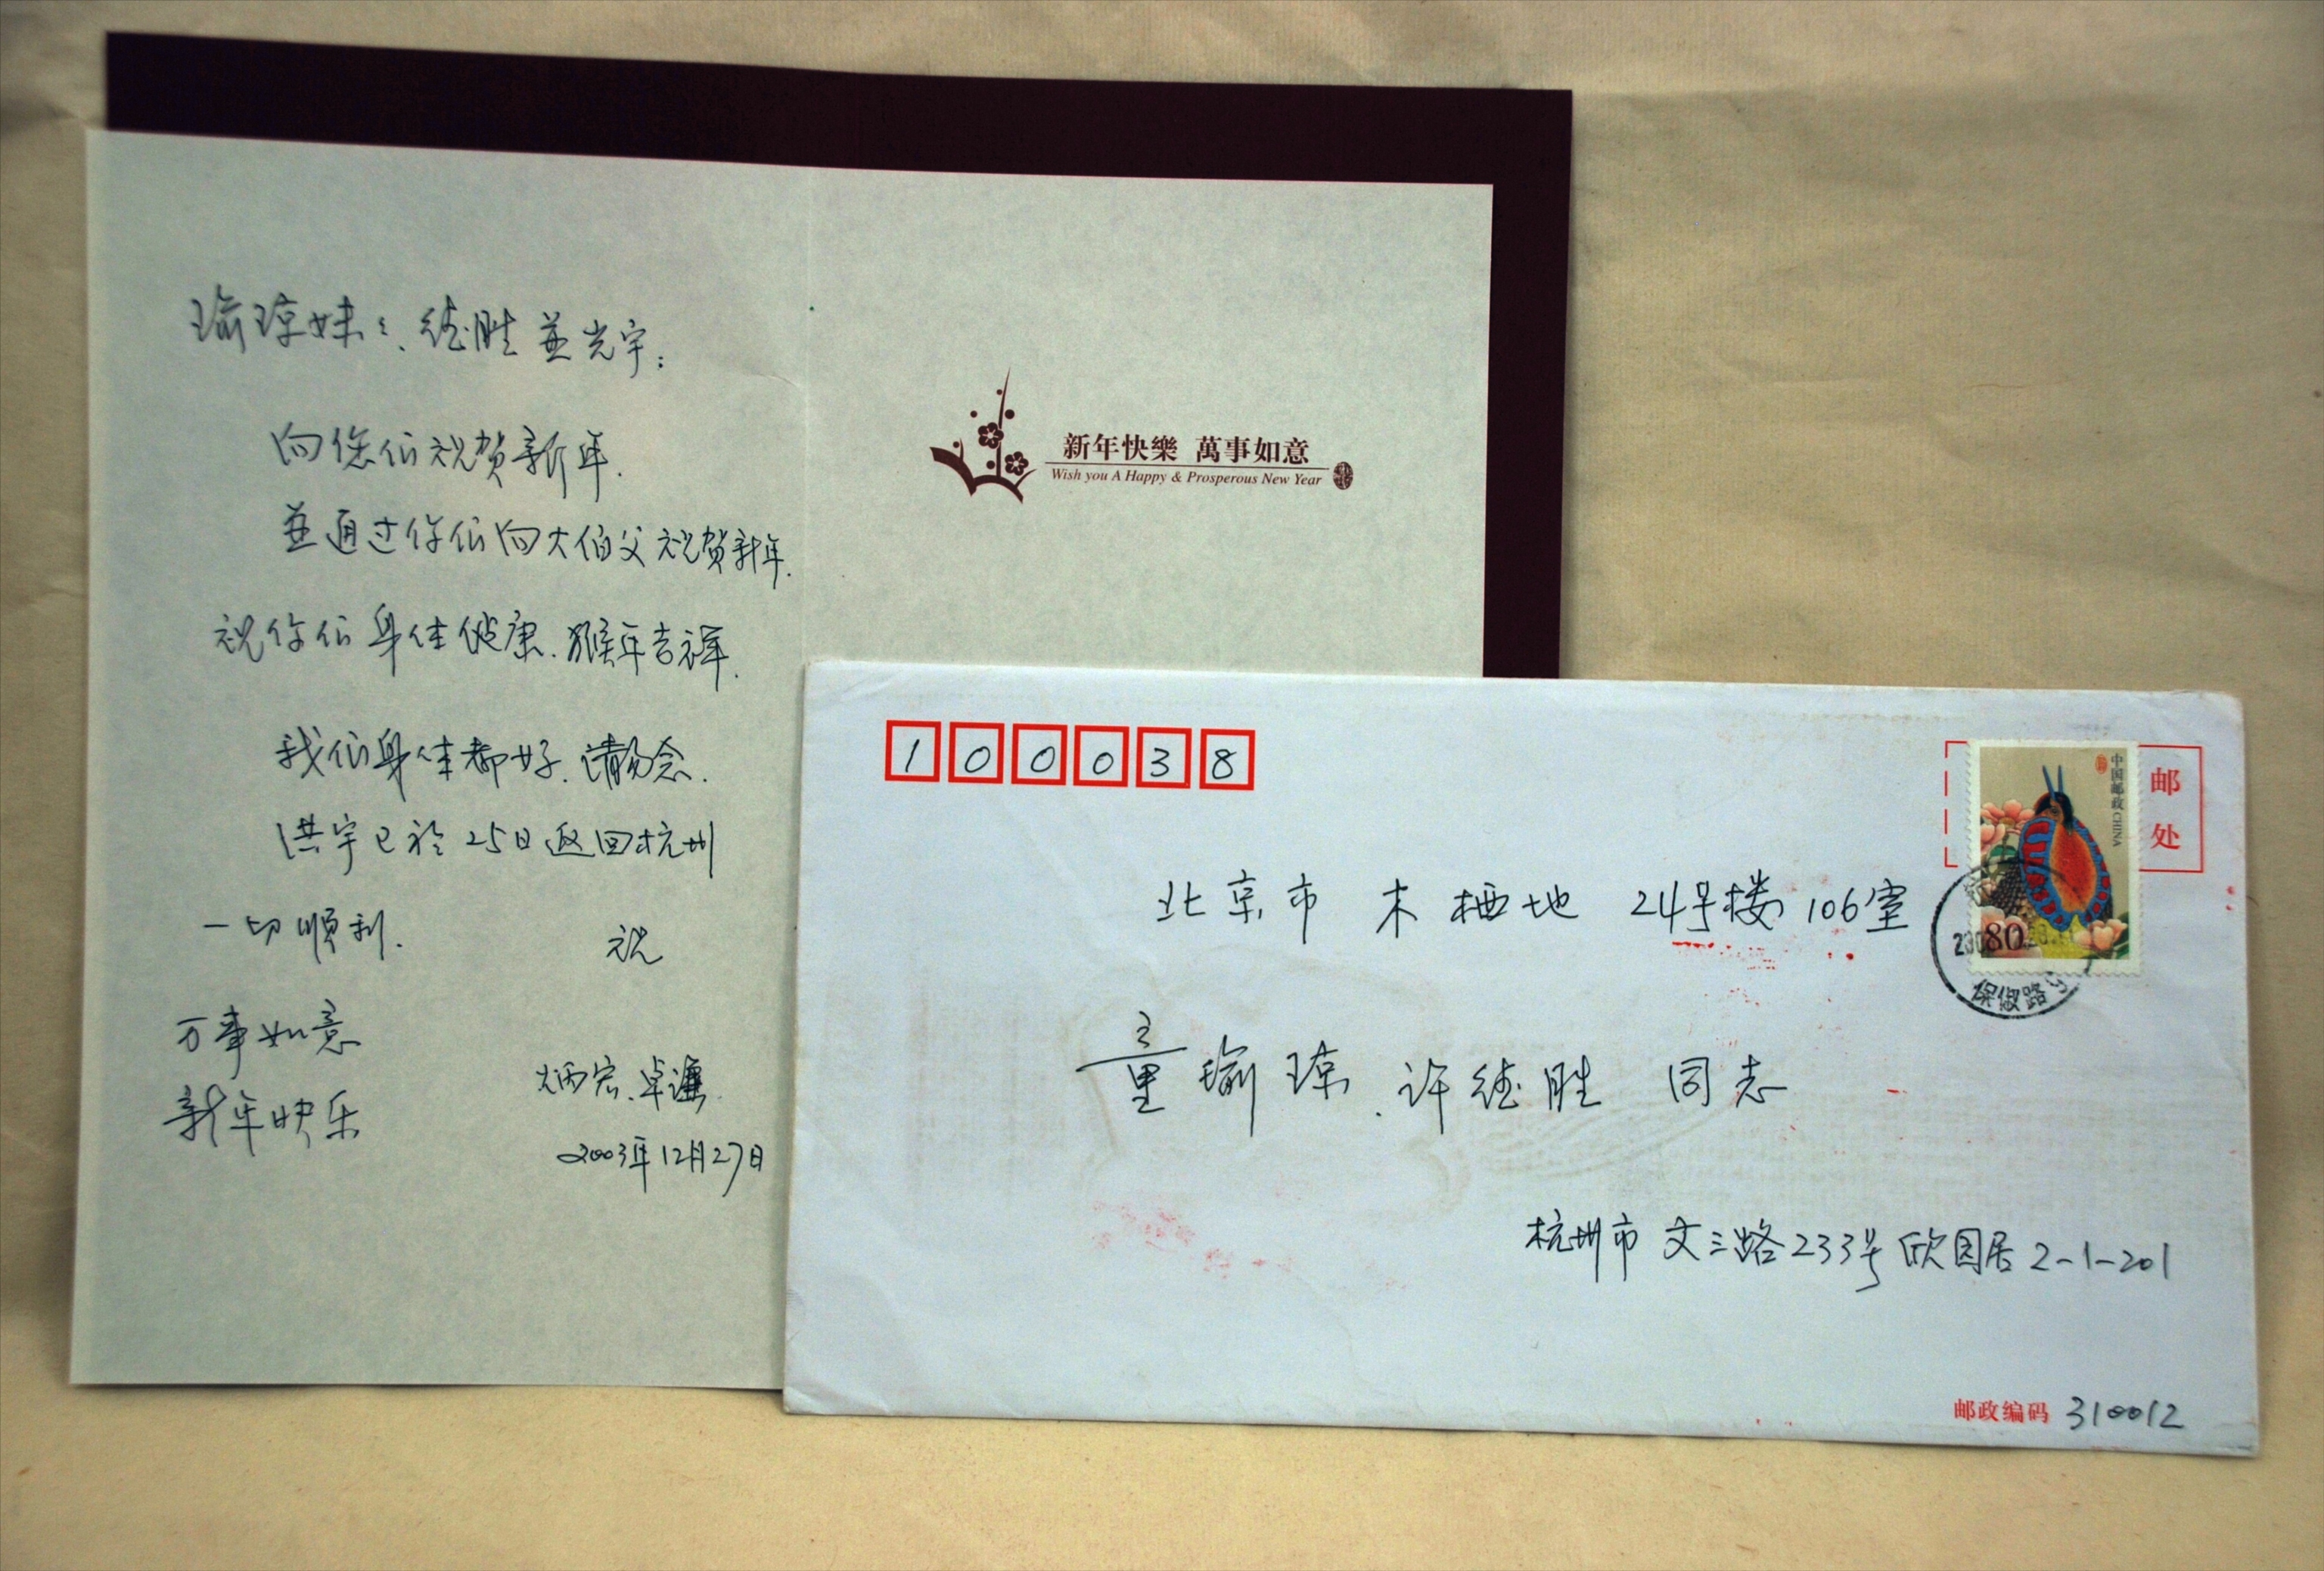 瑜琼妹:、德胜並光宇:
向您们祝贺新年.
並通过你们向大伯父祝贺新年.
祝你们身体健康.猴年吉祥.
我们身体都好.请勿念.
洪宇已於25日返回杭州
一切順利.
祝
万事如意
新年快乐
炳宏、卓谦.
2003年12月27日
新年快樂 萬事如意
Wish you A Happy & Prosperous New Year
100038
中国邮政 CHINA
80
邮
处
保俶路
北京市 木樨地 24号楼 106室
童瑜琼、许德胜 同志
杭州市 文三路233号 欣园居 2-1-201
邮政编码 310012